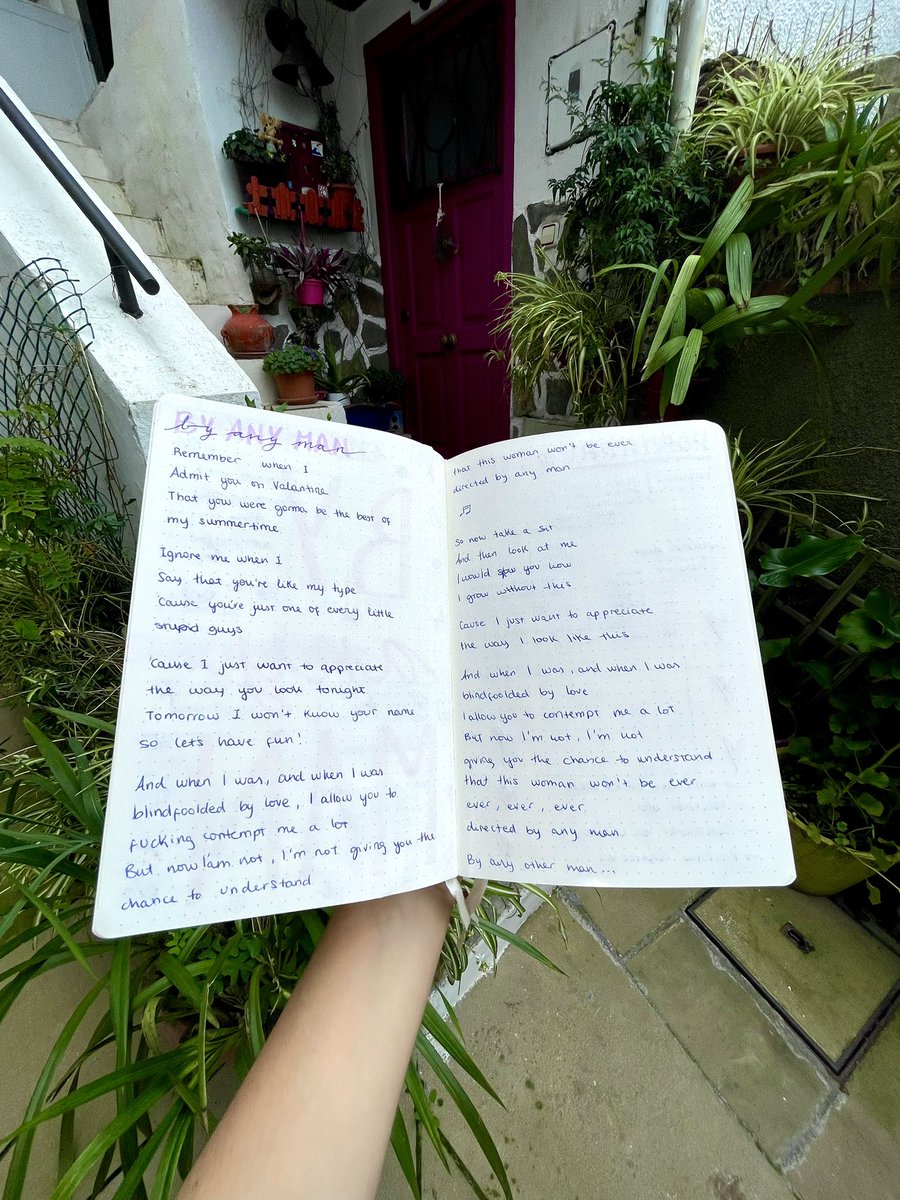 BY ANY MAN
by any man
Remember when I
Admit you on Valantine
That you were gonna be the best of
my summertime
Ignore me when I
Say that you're like my type
'Cause you're just one of every little
stupid guys
'Cause I just want to appreciate
the way you look tonight
Tomorrow I won't know your name
so let's have fun!
And when I was, and when I was
blindfoolded by love, I allow you to
fucking contempt me a lot
But now I'am not, I'm not giving you the
chance to understand
that this woman won't be ever
directed by any man
♫
So now take a sit
And then look at me
I would show you how
I grow without this
Cause I just want to appreciate
the way I look like this
And when I was, and when I was
blindfoolded by love
I allow you to contempt me a lot
But now I'm not, I'm not
giving you the chance to understand
that this woman won't be ever
ever, ever, ever
directed by any man
By any other man...